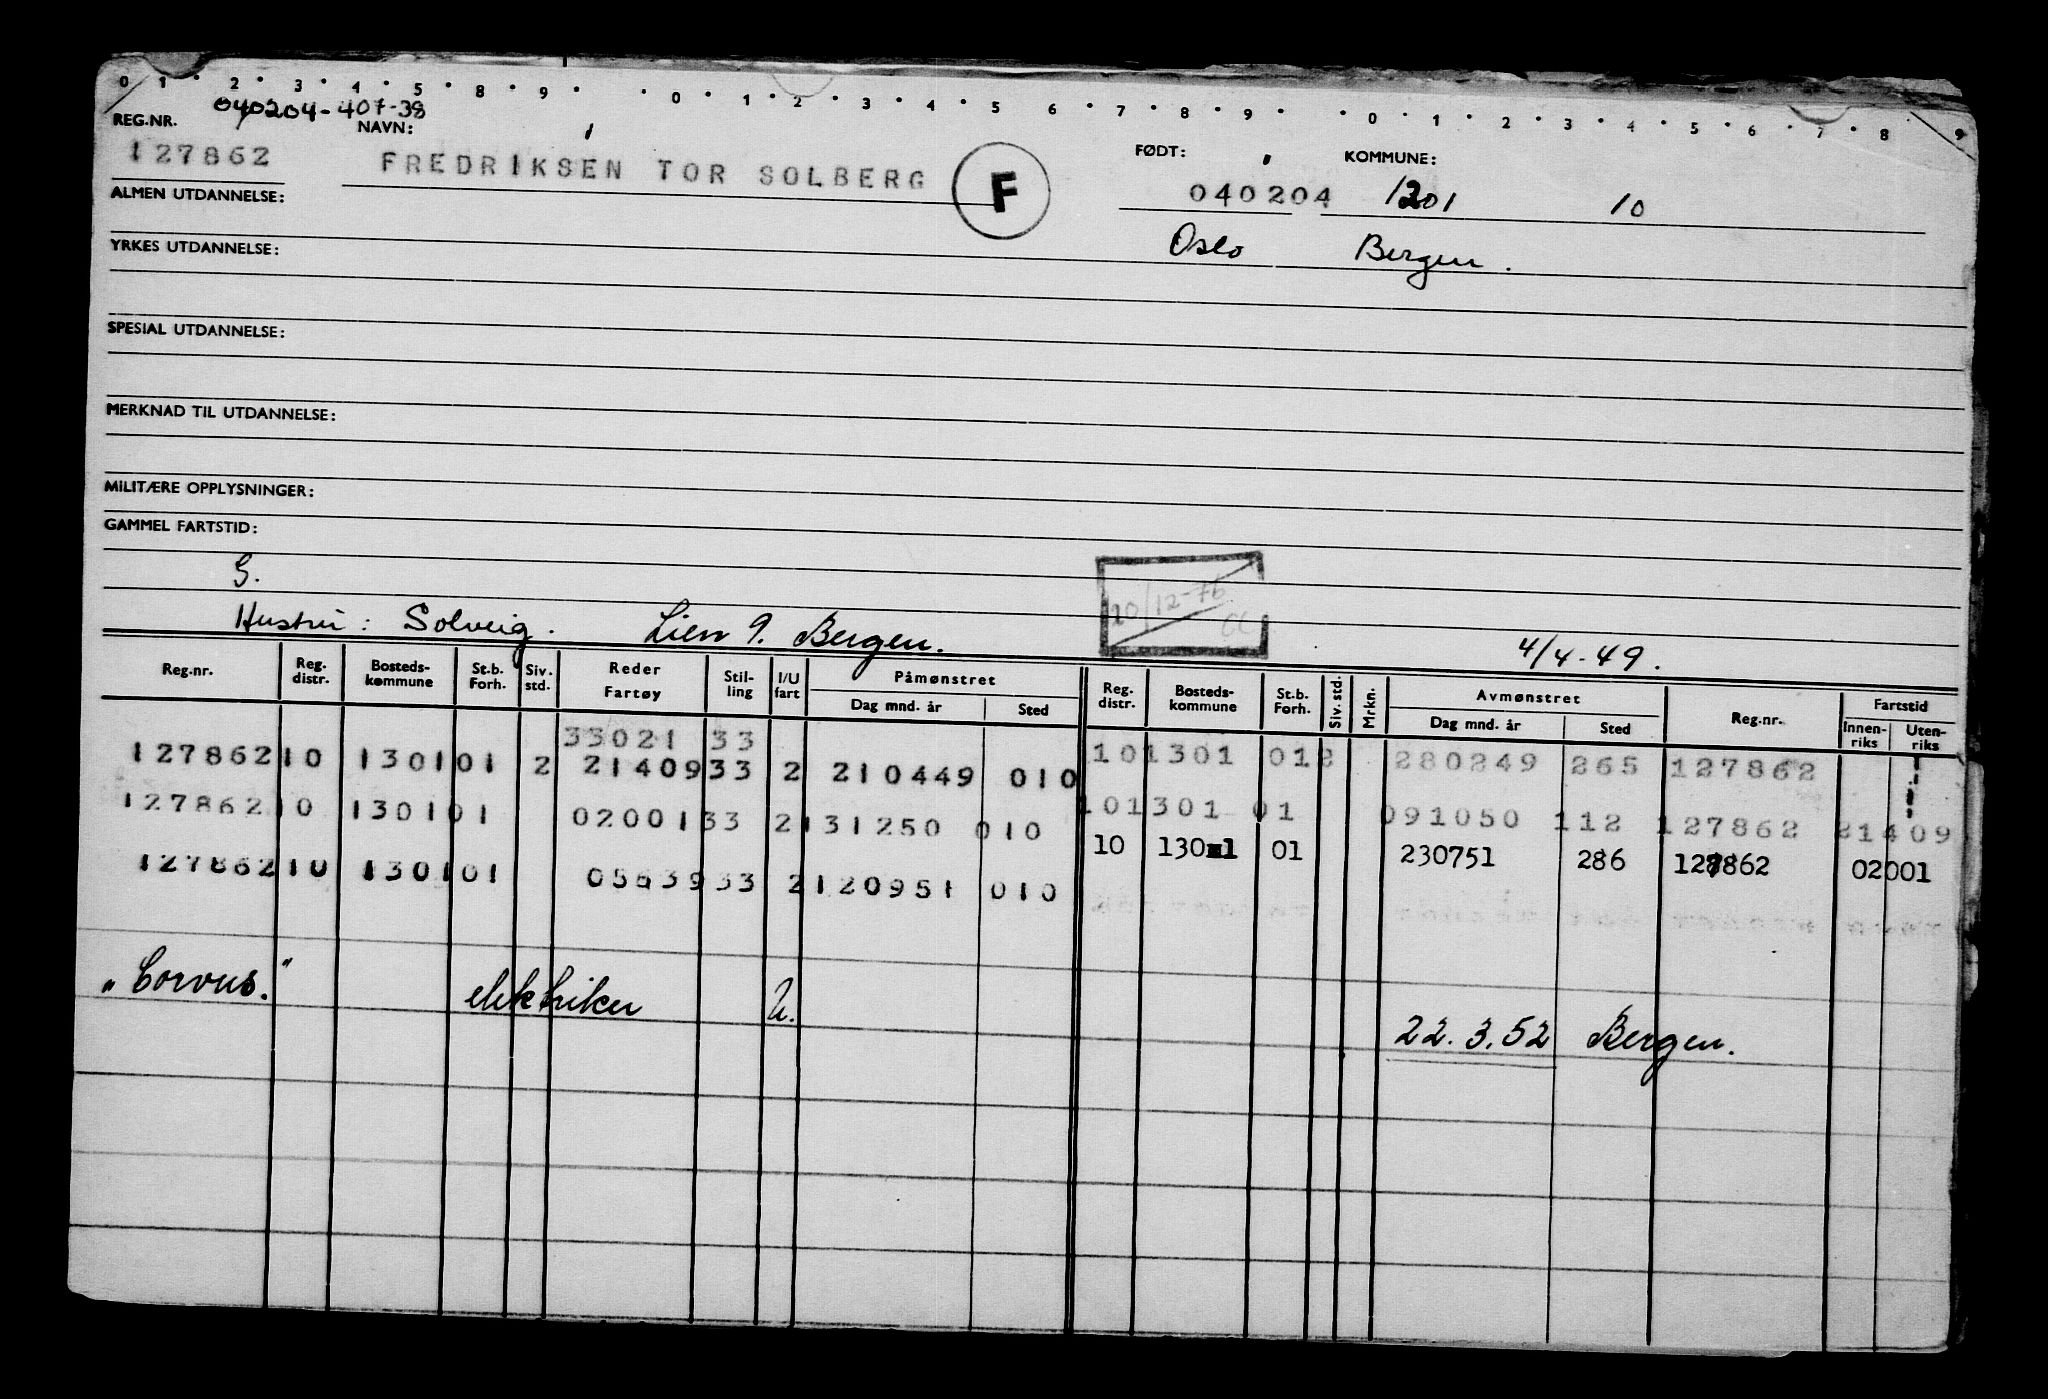 0 1 2 3 4 5 8 9 0 1 2 3 4 5 6 7 8 9 0 1 2 3 4 5 6 7 8 9
040204-407-38
REG.NR. NAVN: FØDT: KOMMUNE:
127862 FREDRIKSEN TOR SOLBERG F 040204 1201 10
ALMEN UTDANNELSE:
Oslo Bergen.
YRKES UTDANNELSE:
SPESIAL UTDANNELSE:
MERKNAD TIL UTDANNELSE:
MILITÆRE OPPLYSNINGER:
GAMMEL FARTSTID:
G.
20/12-76
Hustru: Solveig. Lien 9. Bergen. 4/4-49.
Reg.nr. Reg. distr. Bosteds-kommune St.b. Forh. Siv. std. Reder Fartøy Stil-ling I/U fart Påmønstret Dag mnd. år Sted Reg. distr. Bosteds-kommune St.b. Forh. Siv. std. Mrkn. Avmønstret Dag mnd. år Sted Reg.nr. Fartstid Innen-riks Uten-riks
33021 33 10 1301 012 280249 265 127862
127862 10 1301 01 2 21409 33 2 210449 010
10 1301 01 091050 112 127862 21409
127862 10 1301 01 02001 33 2 131250 010
10 130 1 01 230751 286 127862 02001
127862 10 1301 01 33 2 120951 010
"Corvus." elektriker U. 22.3.52 Bergen.